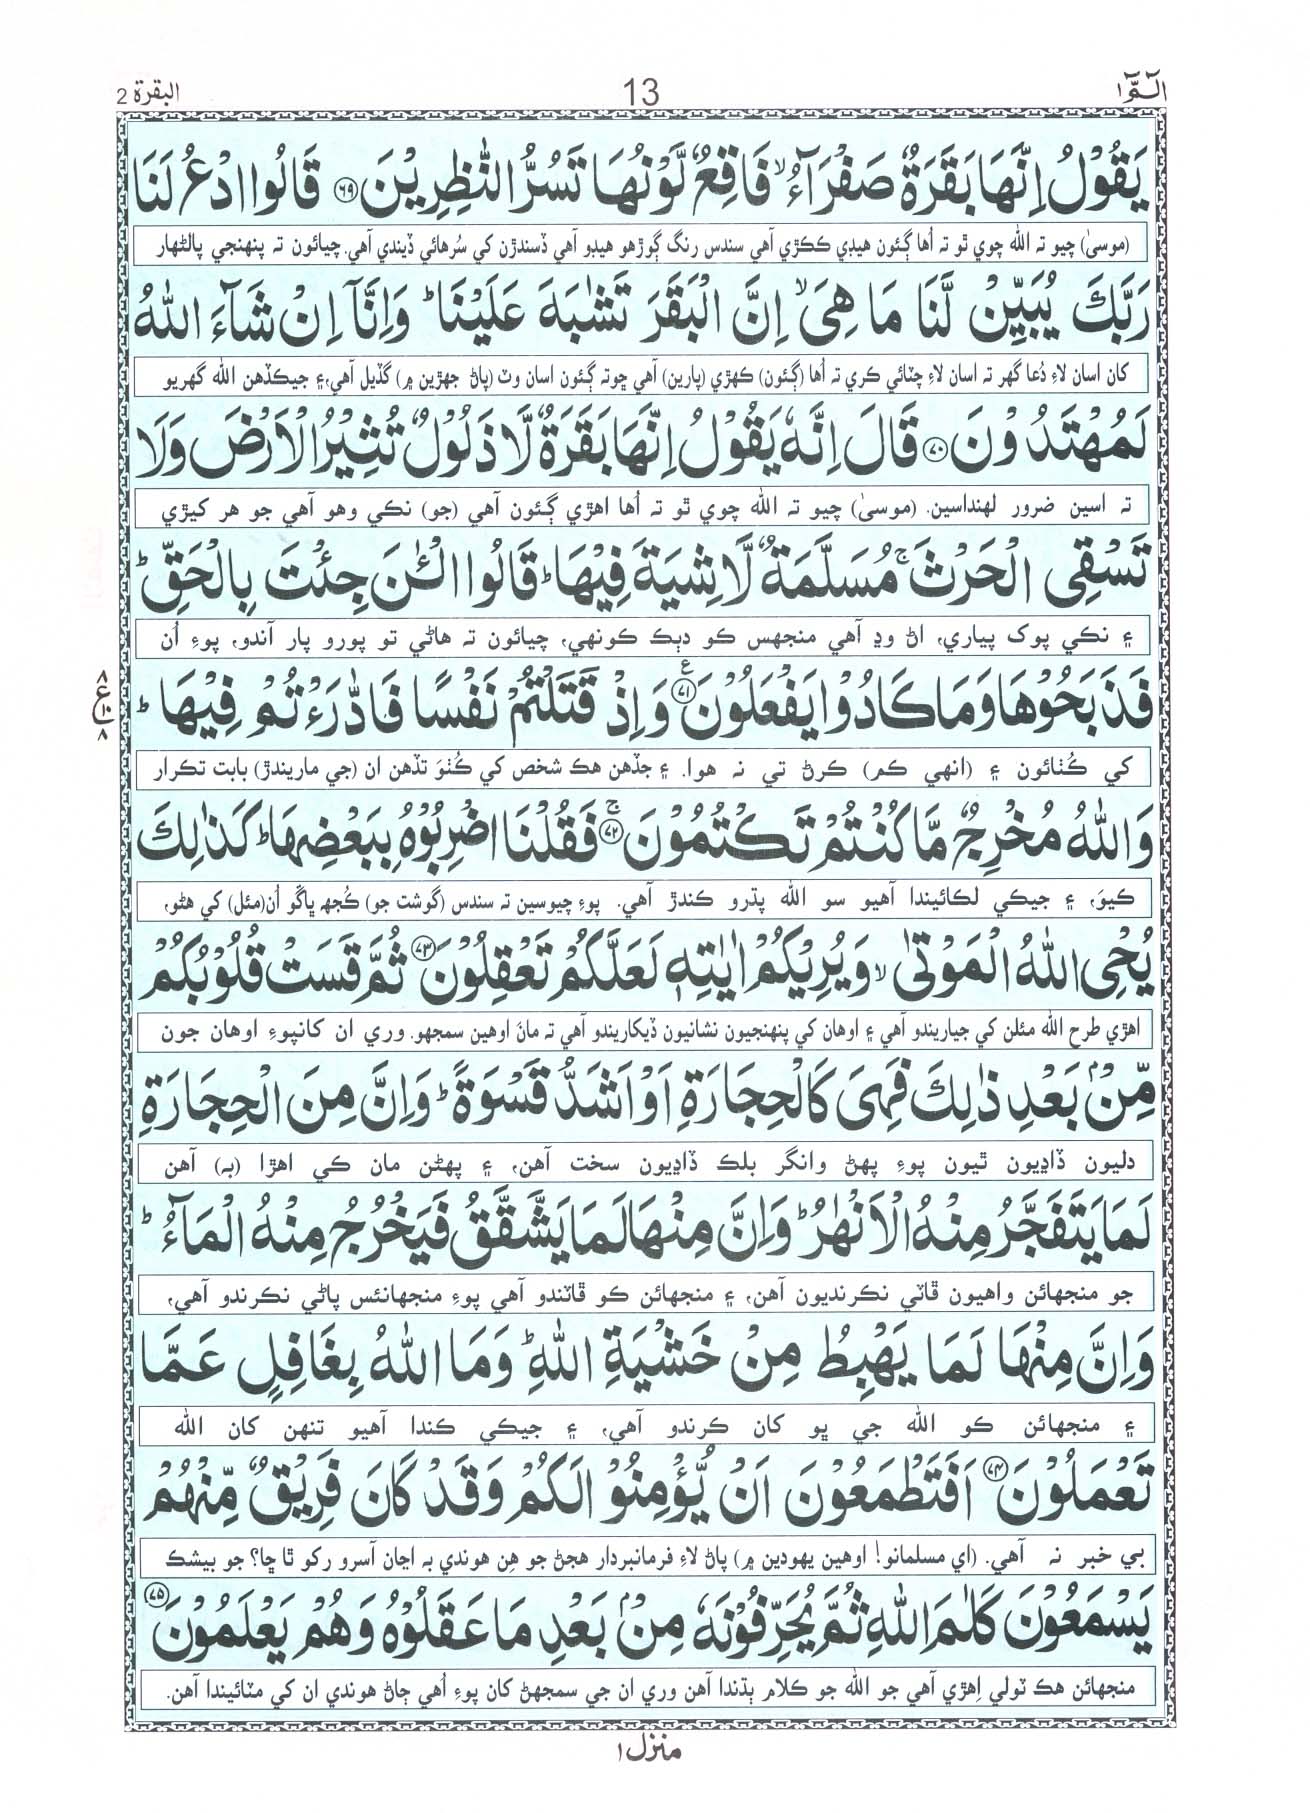 الٓمّٓ ١
13
البقرة 2
يَقُوْلُ اِنَّهَا بَقَرَةٌ صَفْرَآءُ ۙ فَاقِعٌ لَّوْنُهَا تَسُرُّ النّٰظِرِيْنَ ﴿٦٩﴾ قَالُوا ادْعُ لَنَا
(موسىٰ) چيو ته الله چوي ٿو ته اُها ڳئون هيڊي ڪڪڙي آهي سندس رنگ ڳوڙهو هيڊو آهي ڏسندڙن کي سُرهائي ڏيندي آهي. چيائون ته پنهنجي پالڻهار
رَبَّكَ يُبَيِّنْ لَّنَا مَا هِيَ ۙ اِنَّ الْبَقَرَ تَشٰبَهَ عَلَيْنَا ؕ وَاِنَّآ اِنْ شَآءَ اللّٰهُ
کان اسان لاءِ دُعا گهر ته اسان لاءِ چٽائي ڪري ته اُها (ڳئون) ڪهڙي (پارين) آهي ڇوته ڳئون اسان وٽ (پاڻ جهڙين ۾) گڏيل آهي، ۽ جيڪڏهن الله گهريو
لَمُهْتَدُوْنَ ﴿٧٠﴾ قَالَ اِنَّهٗ يَقُوْلُ اِنَّهَا بَقَرَةٌ لَّا ذَلُوْلٌ تُثِيْرُ الْاَرْضَ وَلَا
ته اسين ضرور لهنداسين. (موسىٰ) چيو ته الله چوي ٿو ته اُها اهڙي ڳئون آهي (جو) نڪي وهو آهي جو هر کيڙي
تَسْقِى الْحَرْثَ ۚ مُسَلَّمَةٌ لَّا شِيَةَ فِيْهَا ؕ قَالُوا الْـٰٔنَ جِئْتَ بِالْحَقِّ ؕ
۽ نڪي پوک پياري، اڻ وڍ آهي منجهس ڪو دٻڪ ڪونهي، چيائون ته هاڻي تو پورو پار آندو، پوءِ اُن
فَذَبَحُوْهَا وَمَا كَادُوْا يَفْعَلُوْنَ ﴿٧١﴾ ع وَاِذْ قَتَلْتُمْ نَفْسًا فَادّٰرَءْتُمْ فِيْهَا ؕ
٨ ع ١٠ ٨
کي ڪُٺائون ۽ (انهي ڪم) ڪرڻ تي نه هوا. ۽ جڏهن هڪ شخص کي ڪُٺوَ تڏهن ان (جي ماريندڙ) بابت تڪرار
وَاللّٰهُ مُخْرِجٌ مَّا كُنْتُمْ تَكْتُمُوْنَ ﴿٧٢﴾ ۚ فَقُلْنَا اضْرِبُوْهُ بِبَعْضِهَا ؕ كَذٰلِكَ
ڪيوَ، ۽ جيڪي لڪائيندا آهيو سو الله پڌرو ڪندڙ آهي. پوءِ چيوسين ته سندس (گوشت جو) ڪُجهہ ڀاڱو اُن (مئل) کي هڻو،
يُحْيِ اللّٰهُ الْمَوْتٰى ۙ وَيُرِيْكُمْ اٰيٰتِهٖ لَعَلَّكُمْ تَعْقِلُوْنَ ﴿٧٣﴾ ثُمَّ قَسَتْ قُلُوْبُكُمْ
اهڙي طرح الله مئلن کي جياريندو آهي ۽ اوهان کي پنهنجيون نشانيون ڏيکاريندو آهي ته مانَ اوهين سمجهو. وري ان کانپوءِ اوهان جون
مِّنْۢ بَعْدِ ذٰلِكَ فَهِىَ كَالْحِجَارَةِ اَوْ اَشَدُّ قَسْوَةً ؕ وَاِنَّ مِنَ الْحِجَارَةِ
دليون ڏاڍيون ٿيون پوءِ پهڻ وانگر بلڪ ڏاڍيون سخت آهن، ۽ پهڻن مان ڪي اهڙا (به) آهن
لَمَا يَتَفَجَّرُ مِنْهُ الْاَنْهٰرُ ؕ وَاِنَّ مِنْهَا لَمَا يَشَّقَّقُ فَيَخْرُجُ مِنْهُ الْمَآءُ ؕ
جو منجهائن واهيون ڦاٽي نڪرنديون آهن، ۽ منجهائن ڪو ڦاٽندو آهي پوءِ منجهانئس پاڻي نڪرندو آهي،
وَاِنَّ مِنْهَا لَمَا يَهْبِطُ مِنْ خَشْيَةِ اللّٰهِ ؕ وَمَا اللّٰهُ بِغَافِلٍ عَمَّا
۽ منجهائن ڪو الله جي ڀوَ کان ڪرندو آهي، ۽ جيڪي ڪندا آهيو تنهن کان الله
تَعْمَلُوْنَ ﴿٧٤﴾ اَفَتَطْمَعُوْنَ اَنْ يُّؤْمِنُوْا لَكُمْ وَقَدْ كَانَ فَرِيْقٌ مِّنْهُمْ
بي خبر نه آهي. (اي مسلمانو! اوهين يهودين ۾) پاڻ لاءِ فرمانبردار هجڻ جو هِن هوندي به اڃان آسرو رکو ٿا ڇا؟ جو بيشڪ
يَسْمَعُوْنَ كَلٰمَ اللّٰهِ ثُمَّ يُحَرِّفُوْنَهٗ مِنْۢ بَعْدِ مَا عَقَلُوْهُ وَهُمْ يَعْلَمُوْنَ ﴿٧٥﴾
منجهائن هڪ ٽولي اِهڙي آهي جو الله جو ڪلام ٻڌندا آهن وري ان جي سمجهڻ کان پوءِ اُهي ڄاڻ هوندي ان کي مٽائيندا آهن.
منزل ١